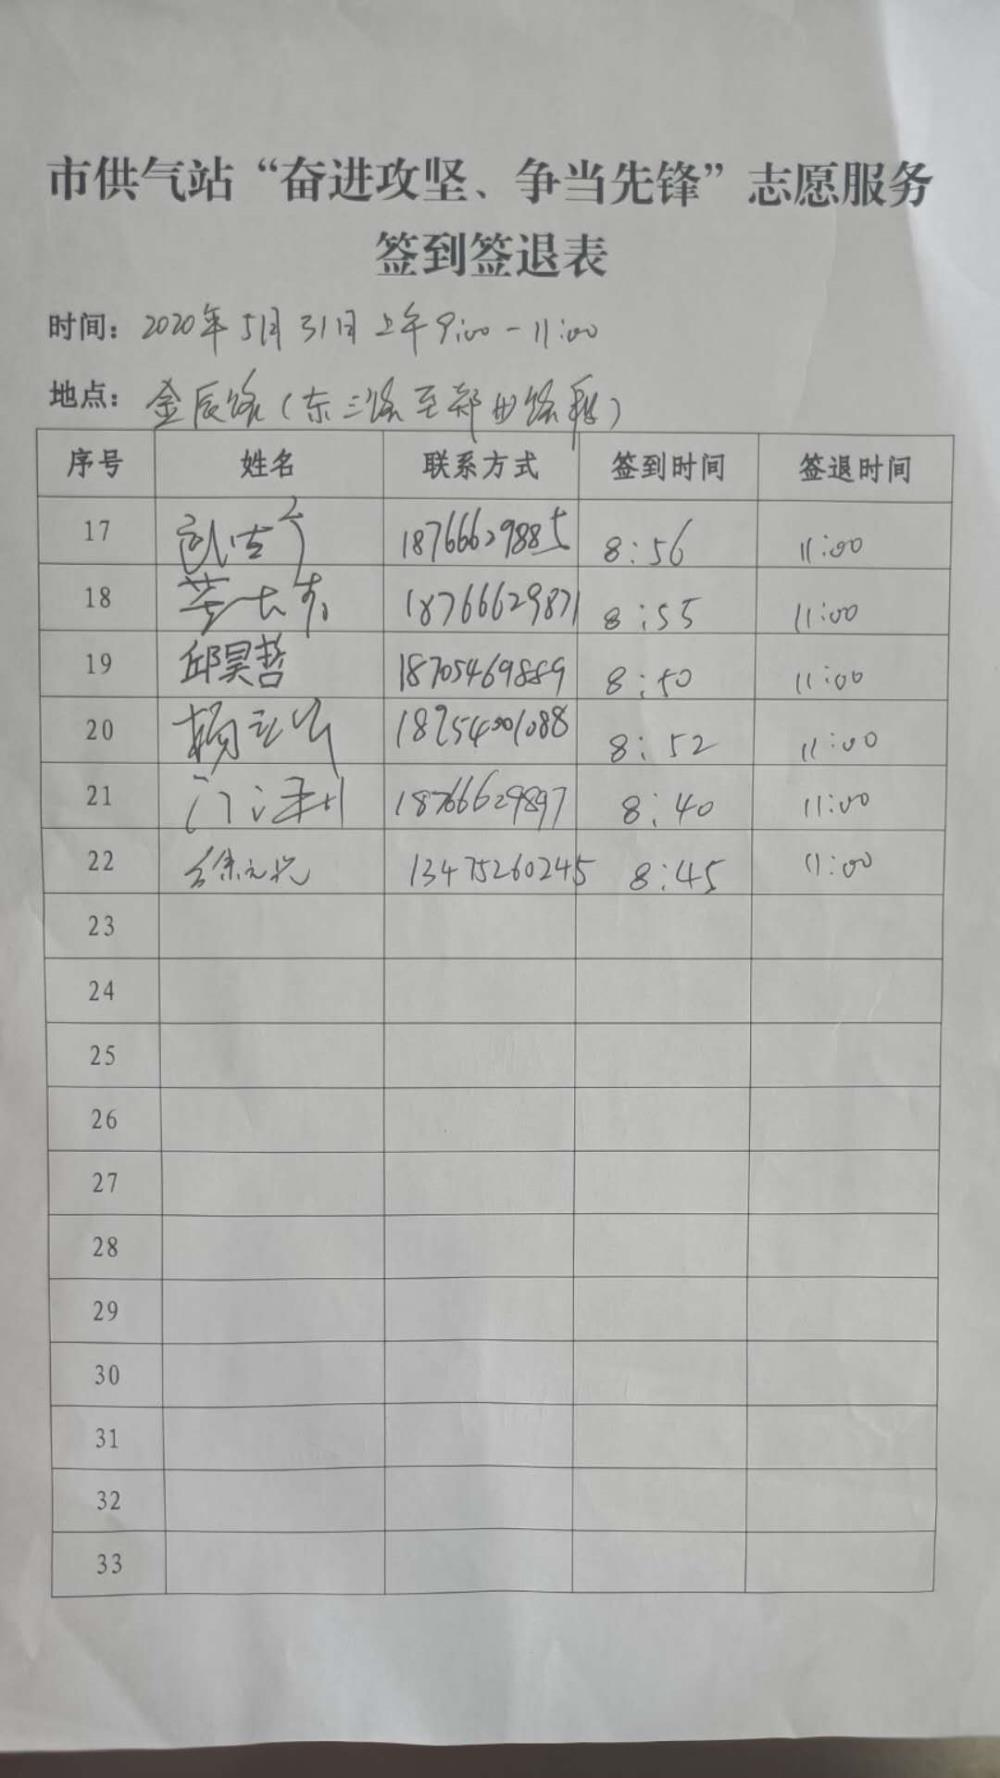 市供气站“奋进攻坚、争当先锋”志愿服务
签到签退表
时间：2020年5月31日上午9:00-11:00
地点：金辰路（东三路至郑州路段）
序号 姓名 联系方式 签到时间 签退时间
17 18766629885 8:56 11:00
18 18766629871 8:55 11:00
19 邱昊哲 18705469889 8:50 11:00
20 杨 8:52 11:00
21 18766629897 8:40 11:00
22 徐元悦 13475260245 8:45 11:00
23
24
25
26
27
28
29
30
31
32
33